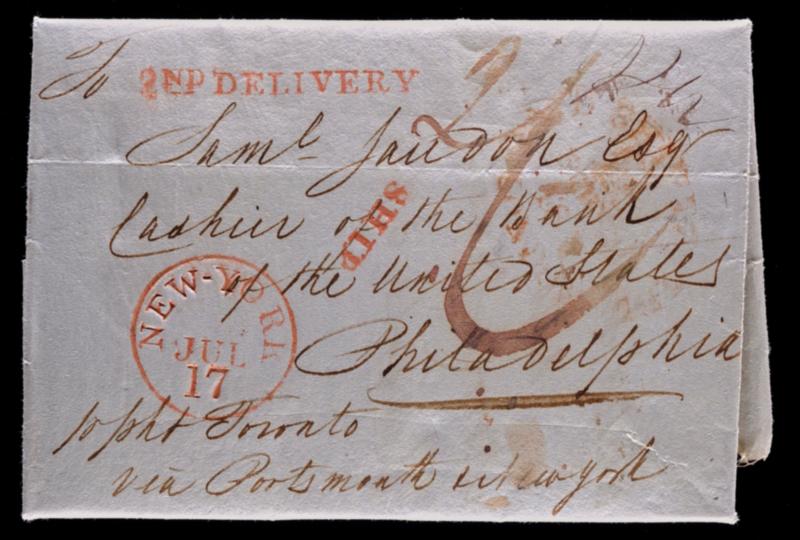 To 2ND DELIVERY
Saml Jaudon Esq
Cashier of the Bank
SHIP
of the United States
Philadelphia
NEW-YORK
JUL
17
Toronto
via Portsmouth & New york